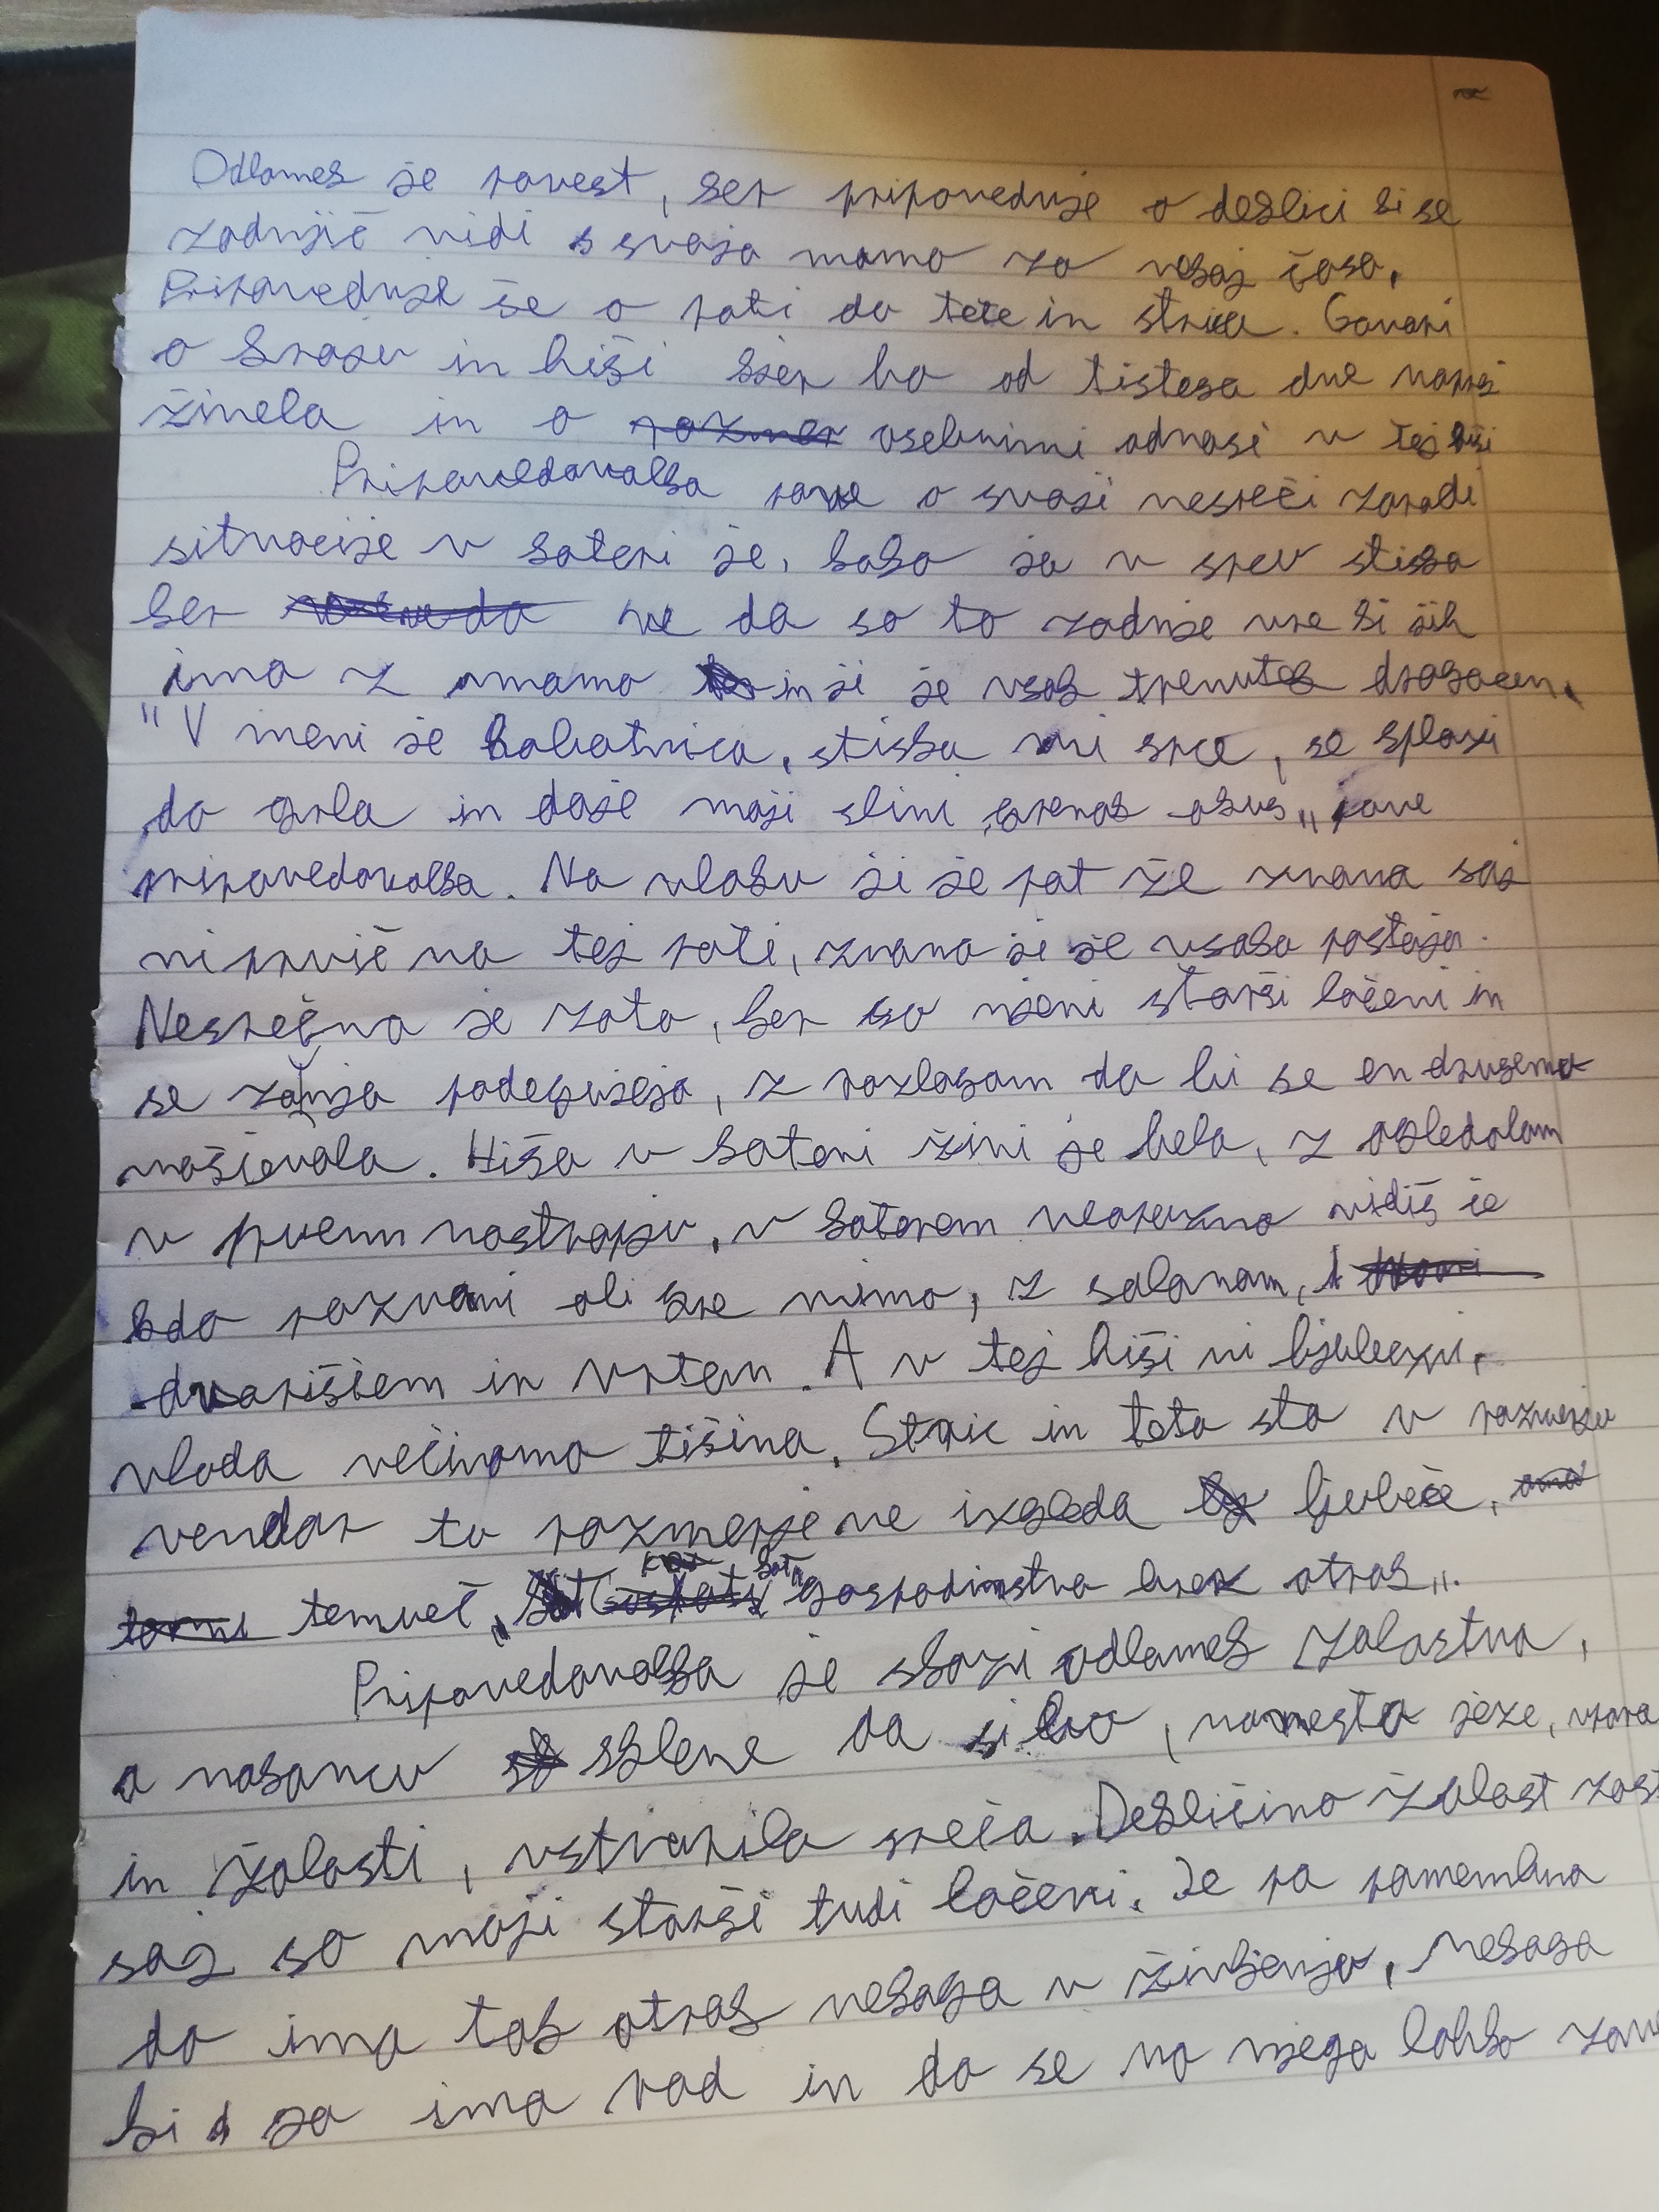 Odlomek je povest, ker pripoveduje o deklici ki se
zadnjič vidi s svojo mamo za nekaj časa.
Pripoveduje še o poti do tete in strica. Govori
o kraju in hiši kjer bo od tistega dne naprej
živela in o osebnimi odnosi v tej hiši
Pripovedovalka pove o svoji nesreči zaradi
situacije v kateri je, kako jo v srcu stiska
ker ve da so to zadnje ure ki jih
ima z mamo in ji je vsak trenutek dragocen.
"V meni je hobotnica, stiska mi srce, se splazi
do grla in daje moji slini grenak okus„ pove
pripovedovalka. Na vlaku ji je pot že znana saj
ni prvič na tej poti, znana ji je vsaka postaja.
Nesrečna je zato, ker so njeni starši ločeni in
se zanjo podegujejo, z razlogom da bi se en drugemu
maščevala. Hiša v kateri živi je bela, z ogledalom
v prvem nastropju, v katerem neopazno vidiš če
kdo pozvoni ali gre mimo, z salonom,
dvoriščem in vrtom. A v tej hiši ni ljubezni,
vlada večinoma tišina. Stric in teta sta v razmerju
vendar to razmerje ne izgleda ljubeče,
temveč „kot gospodinstvo brez otrok„.
Pripovedovalka je skozi odlomek žalostna,
a nakoncu sklene da si bo, namesto jeze,
in žalosti, ustvarila srečo. Dekličino žalost
saj so moji starši tudi ločeni. Je pa pomembno
da ima tak otrok nekoga v življenju, nekoga
ki ga ima rad in da se na njega lahko